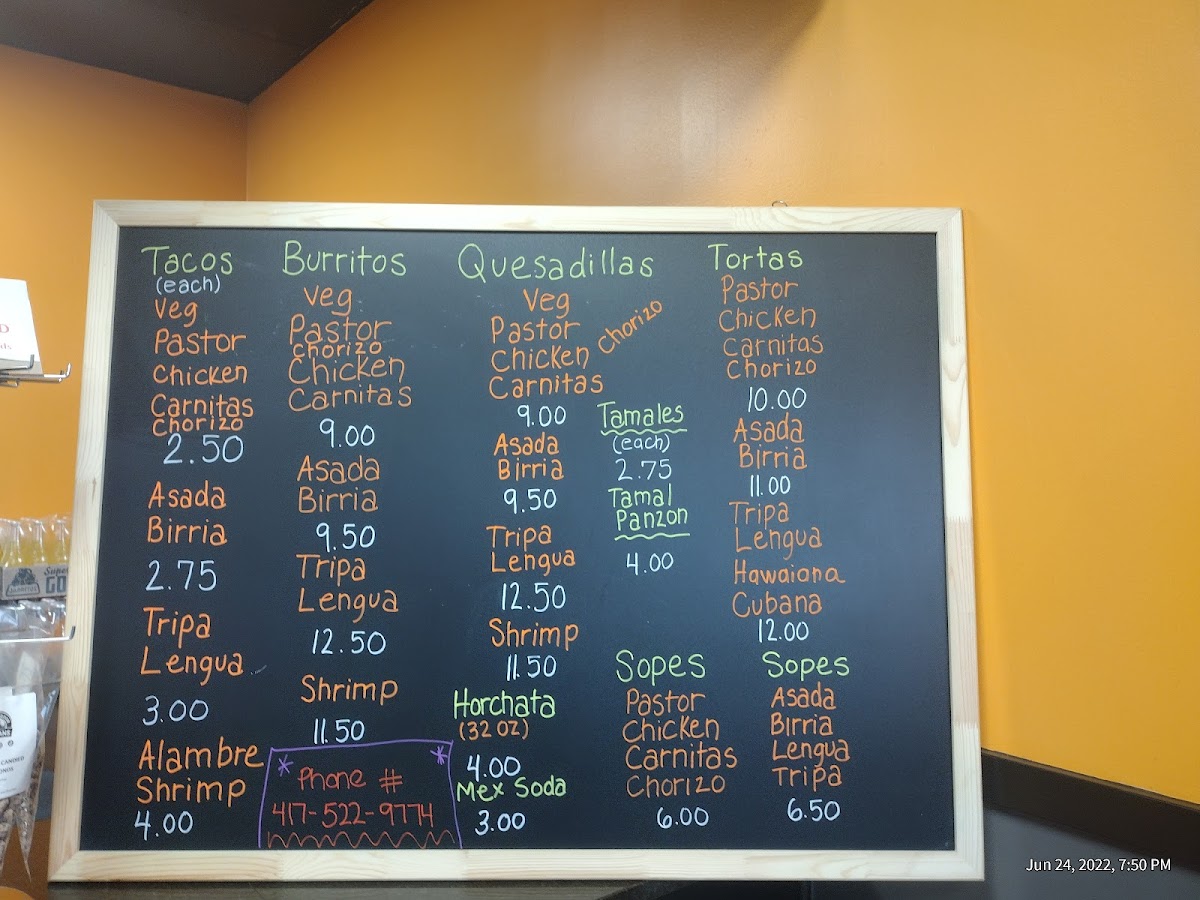 Tacos
(each)
Veg
Pastor
Chicken
Carnitas
Chorizo
2.50
Asada
Birria
2.75
Tripa
Lengua
3.00
Alambre
Shrimp
4.00
Burritos
Veg
Pastor
Chorizo
Chicken
Carnitas
9.00
Asada
Birria
9.50
Tripa
Lengua
12.50
Shrimp
11.50
* Phone # *
417-522-9774
Quesadillas
Veg
Pastor
Chicken
Chorizo
Carnitas
9.00
Asada
Birria
9.50
Tripa
Lengua
12.50
Shrimp
11.50
Horchata
(32 OZ)
4.00
Mex Soda
3.00
Tamales
(each)
2.75
Tamal
Panzon
4.00
Sopes
Pastor
Chicken
Carnitas
Chorizo
6.00
Tortas
Pastor
Chicken
Carnitas
Chorizo
10.00
Asada
Birria
11.00
Tripa
Lengua
Hawaiana
Cubana
12.00
Sopes
Asada
Birria
Lengua
Tripa
6.50
Jun 24, 2022, 7:50 PM